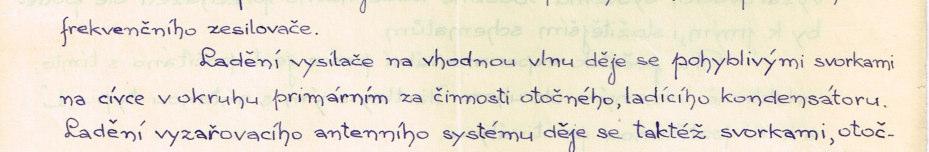 frekvenčního zesilovače.
Ladění vysílače na vhodnou vlnu děje se pohyblivými svorkami
na cívce v okruhu primárním za činnosti otočného, ladícího kondensátoru.
Ladění vyzařovacího antenního systému děje se taktéž svorkami, otoč-